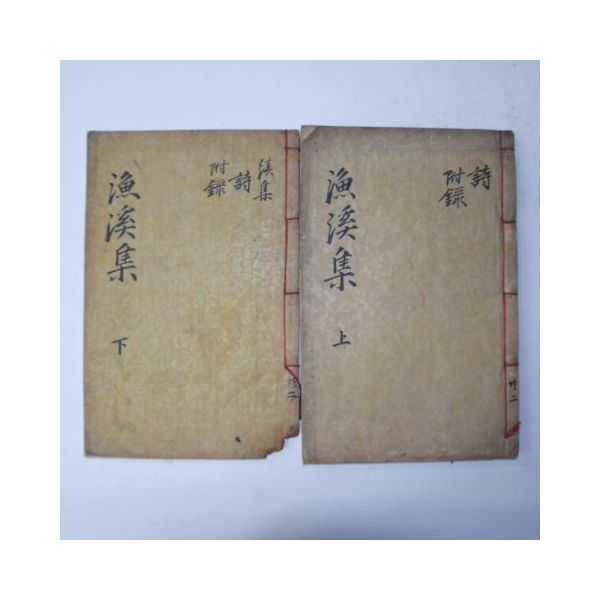 漁溪集
上
詩
附錄
共二
漁溪集
下
溪集
詩
附錄
共二